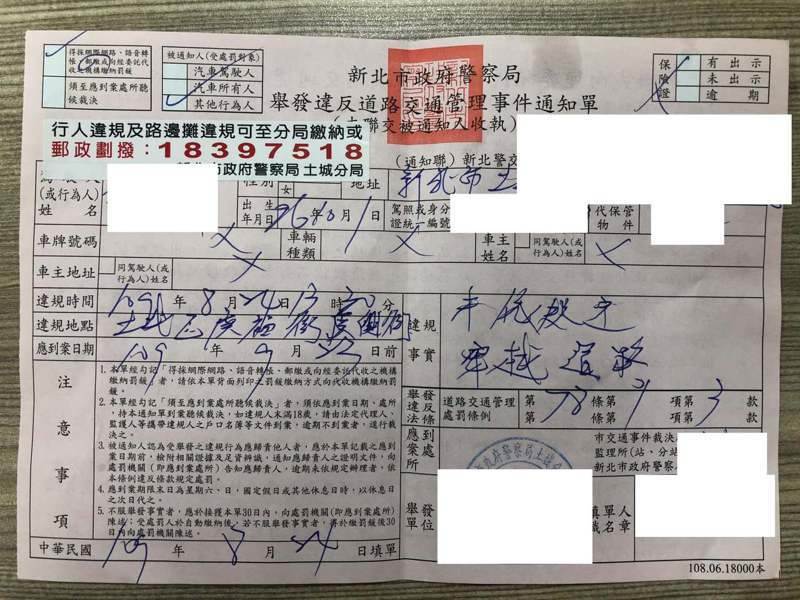 得採網際網路、語音轉
帳、郵繳或向經委託代收
之機構繳納罰鍰
須至應到案處所聽
候裁決
被通知人(受處罰對象)
汽車駕駛人
汽車所有人
其他行為人
新北市政府警察局
舉發違反道路交通管理事件通知單
保險證
有出示
未出示
逾期
行人違規及路邊攤違規可至分局繳納或
郵政劃撥：18397518
新北市政府警察局 土城分局
(通知聯) 新北警交
(或行為人)
姓名
性別
女
地址
新北市土
出生
年月日
96年10月1
駕照或身分
證統一編號
代保管
物件
車牌號碼
車輛
種類
車主
姓名
同駕駛人(或
行為人)姓名
車主地址
同駕駛人(或
行為人)地址
違規時間
109年8月24日
時
分
違規地點
應到案日期
109年9月
日前
違規
事實
穿越道路
注意事項
1.本單經勾記「得採網際網路、語音轉帳、郵繳或向經委託代收之機構
繳納罰鍰」者，請依本單背面列印之罰鍰繳納方式向代收機構繳納罰
鍰。
2.本單經勾記「須至應到案處所聽候裁決」者，須依應到案日期、處所，
持本通知單到案聽候裁決，如違規人未滿18歲，請由法定代理人、
監護人等攜帶違規人之戶口名簿等文件到案，逾期不到案者，逕行裁
決之。
3.被通知人認為受舉發之違規行為應歸責他人者，應於本單記載之應到
案日期前，檢附相關證據及足資辨識、通知應歸責人之證明文件，向
處罰機關(即應到案處所)告知應歸責人，逾期未依規定辦理者，依
本條例違反條款規定處罰。
4.應到案期限末日為星期六、日，國定假日或其他休息日時，以休息日
之次日代之。
5.不服舉發事實者，應於接獲本單30日內，向處罰機關(即應到案處所)
陳述；受處罰人於自動繳納後，若不服舉發事實者，得於繳罰鍰後30
日內向處罰機關陳述。
舉發
違反
法條
道路交通管理
處罰條例
第78條第1項第3款
應到案處所
市交通事件裁決
監理所(站、分站
新北市政府警察
舉發
單位
填單人
職名章
中華民國109年8月24日填單
108.06.18000本